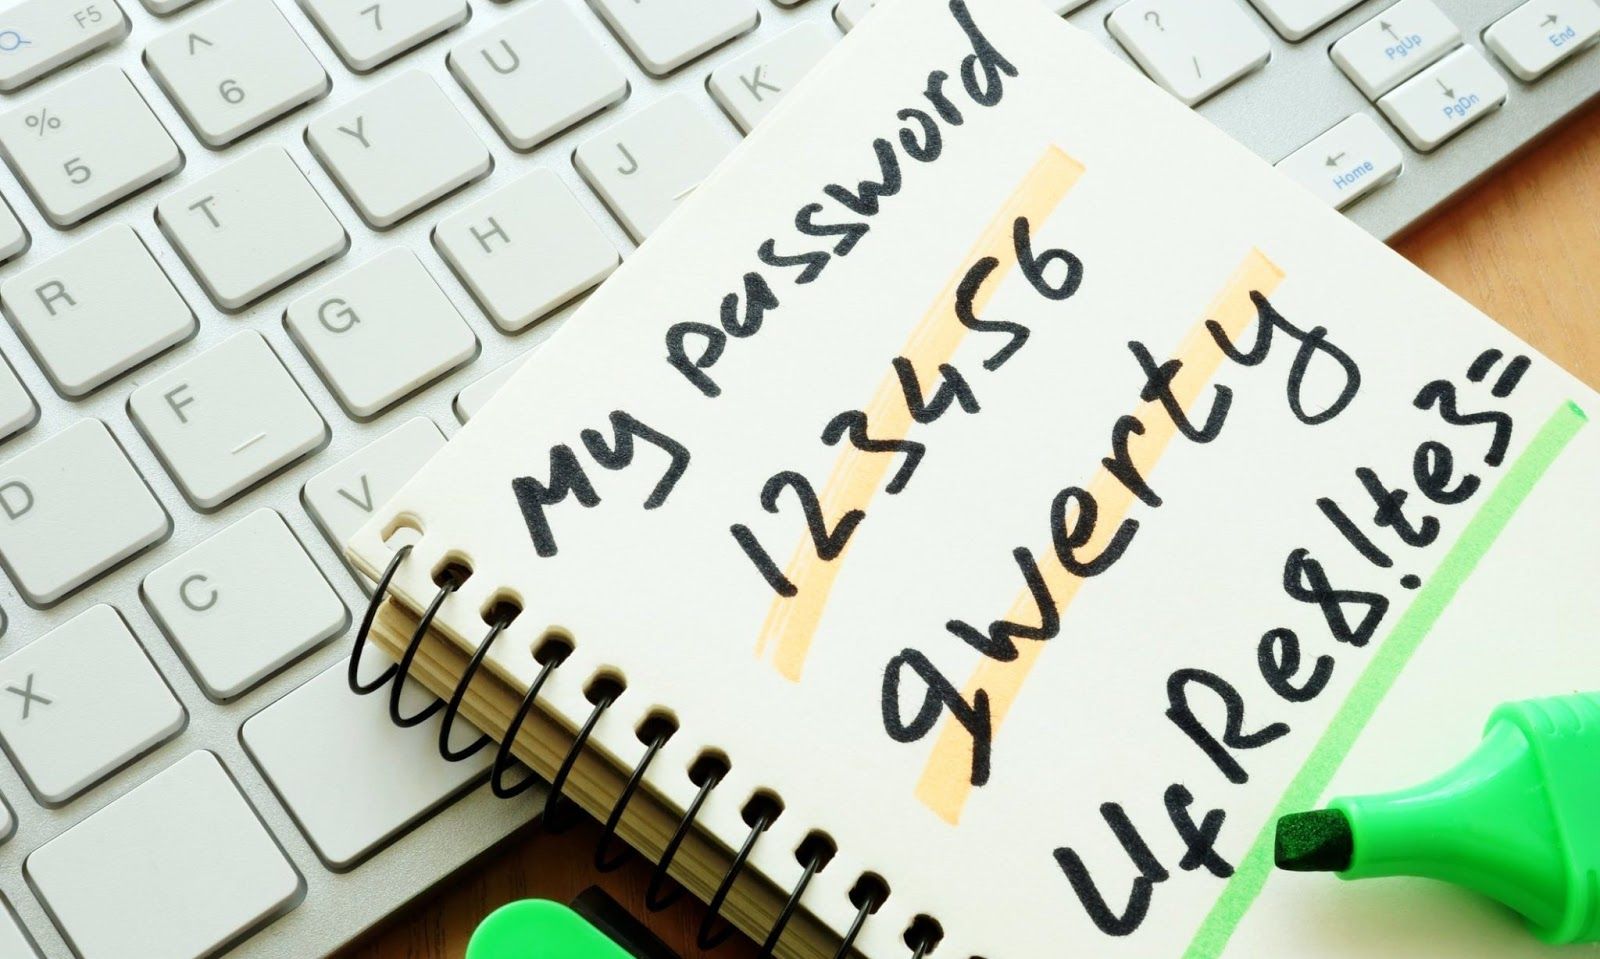 F5
7
^
6
U
K
?
/
PgUp
PgDn
End
Home
%
5
Y
J
T
H
R
G
F
D
V
C
X
My password
123456
qwerty
UfRe8!te3=